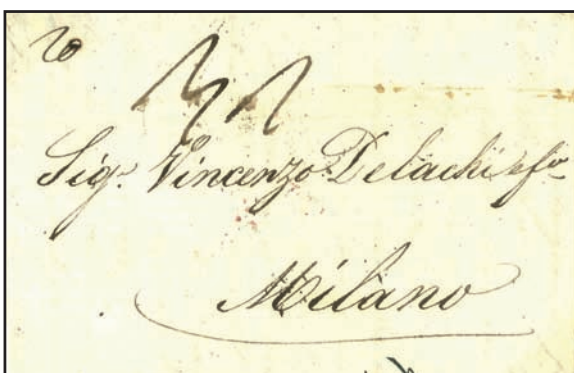 Sig.r Vincenzo Delachi
Milano